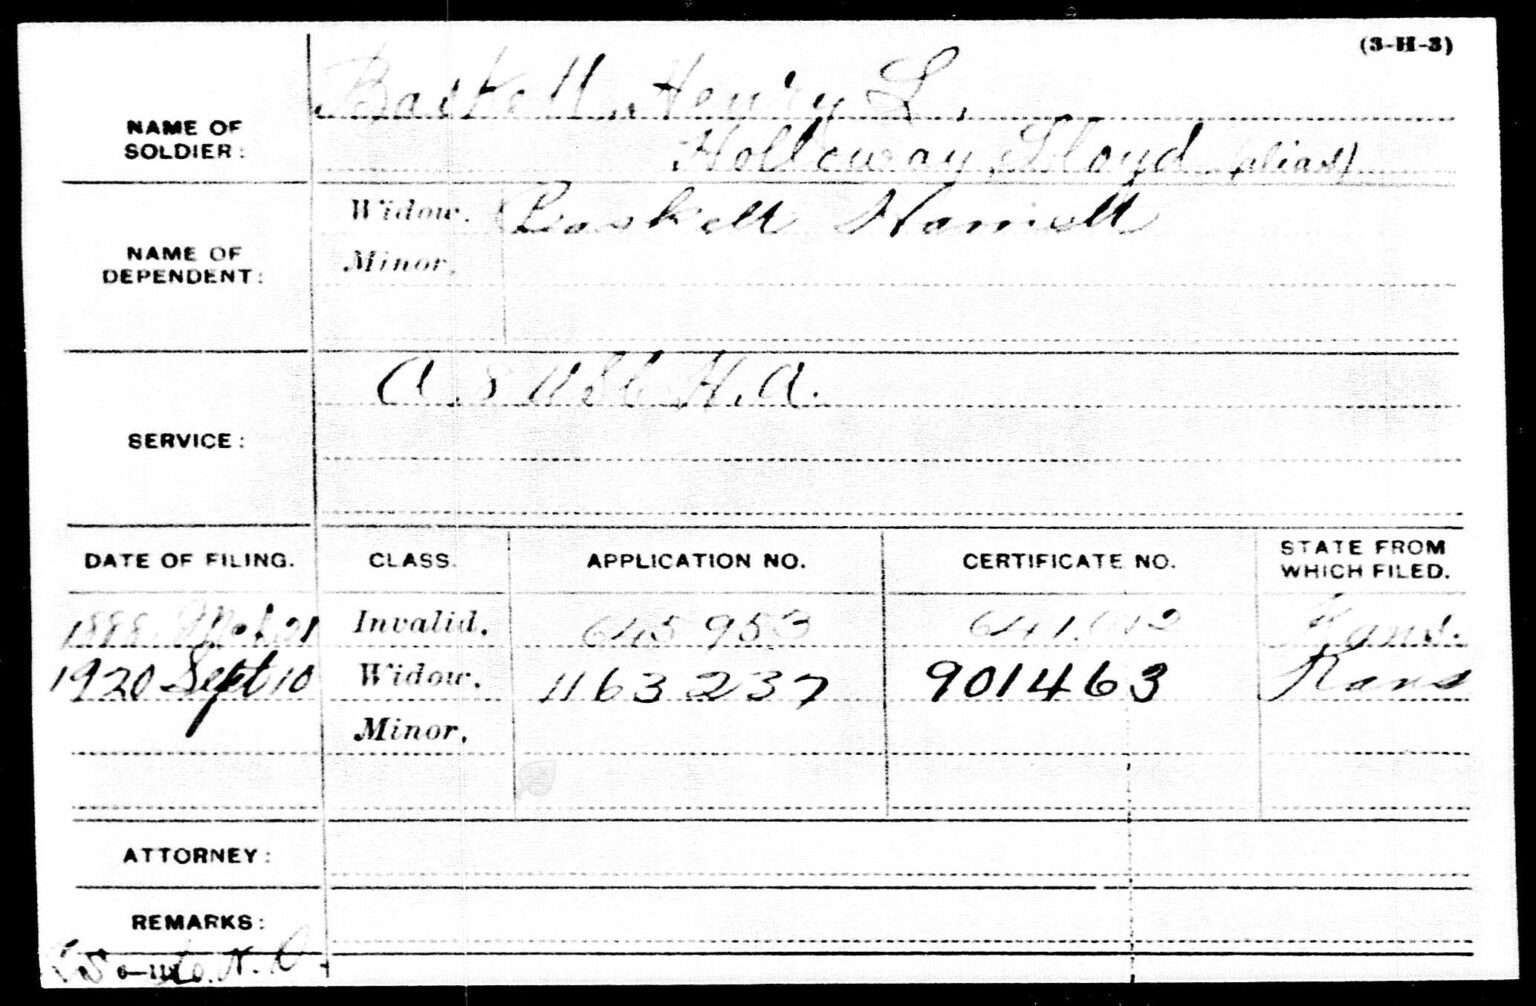 (3-H-3)
NAME OF SOLDIER: Baskett, Henry L.
Holloway, Lloyd (alias)
NAME OF DEPENDENT: Widow. Baskett Harriett
Minor.
SERVICE: A. 8 U S C H. A.
DATE OF FILING. CLASS. APPLICATION NO. CERTIFICATE NO. STATE FROM WHICH FILED.
1888 Mch 21 Invalid. 645 953 641.012 Kans.
1920 Sept 10 Widow. 1163 237 901463 Kans
Minor.
ATTORNEY:
REMARKS: